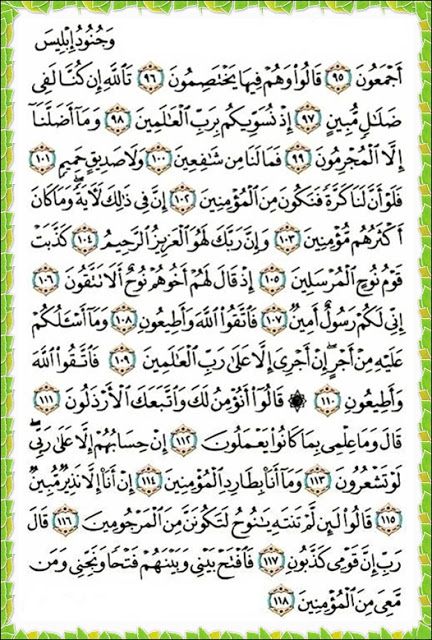 وَجُنُودُ إِبْلِيسَ
أَجْمَعُونَ ٩٥ قَالُوا۟ وَهُمْ فِيهَا يَخْتَصِمُونَ ٩٦ تَٱللَّهِ إِن كُنَّا لَفِى
ضَلَٰلٍ مُّبِينٍ ٩٧ إِذْ نُسَوِّيكُم بِرَبِّ ٱلْعَٰلَمِينَ ٩٨ وَمَآ أَضَلَّنَآ
إِلَّا ٱلْمُجْرِمُونَ ٩٩ فَمَا لَنَا مِن شَٰفِعِينَ ١٠٠ وَلَا صَدِيقٍ حَمِيمٍ ١٠١
فَلَوْ أَنَّ لَنَا كَرَّةً فَنَكُونَ مِنَ ٱلْمُؤْمِنِينَ ١٠٢ إِنَّ فِى ذَٰلِكَ لَءَايَةً ۖ وَمَا كَانَ
أَكْثَرُهُم مُّؤْمِنِينَ ١٠٣ وَإِنَّ رَبَّكَ لَهُوَ ٱلْعَزِيزُ ٱلرَّحِيمُ ١٠٤ كَذَّبَتْ
قَوْمُ نُوحٍ ٱلْمُرْسَلِينَ ١٠٥ إِذْ قَالَ لَهُمْ أَخُوهُمْ نُوحٌ أَلَا تَتَّقُونَ ١٠٦
إِنِّى لَكُمْ رَسُولٌ أَمِينٌ ١٠٧ فَٱتَّقُوا۟ ٱللَّهَ وَأَطِيعُونِ ١٠٨ وَمَآ أَسْـَٔلُكُمْ
عَلَيْهِ مِنْ أَجْرٍ ۖ إِنْ أَجْرِىَ إِلَّا عَلَىٰ رَبِّ ٱلْعَٰلَمِينَ ١٠٩ فَٱتَّقُوا۟ ٱللَّهَ
وَأَطِيعُونِ ١١٠ ۞ قَالُوٓا۟ أَنُؤْمِنُ لَكَ وَٱتَّبَعَكَ ٱلْأَرْذَلُونَ ١١١
قَالَ وَمَا عِلْمِى بِمَا كَانُوا۟ يَعْمَلُونَ ١١٢ إِنْ حِسَابُهُمْ إِلَّا عَلَىٰ رَبِّى ۖ
لَوْ تَشْعُرُونَ ١١٣ وَمَآ أَنَا۠ بِطَارِدِ ٱلْمُؤْمِنِينَ ١١٤ إِنْ أَنَا۠ إِلَّا نَذِيرٌ مُّبِينٌ
١١٥ قَالُوا۟ لَئِن لَّمْ تَنتَهِ يَٰنُوحُ لَتَكُونَنَّ مِنَ ٱلْمَرْجُومِينَ ١١٦ قَالَ
رَبِّ إِنَّ قَوْمِى كَذَّبُونِ ١١٧ فَٱفْتَحْ بَيْنِى وَبَيْنَهُمْ فَتْحًا وَنَجِّنِى وَمَن
مَّعِىَ مِنَ ٱلْمُؤْمِنِينَ ١١٨